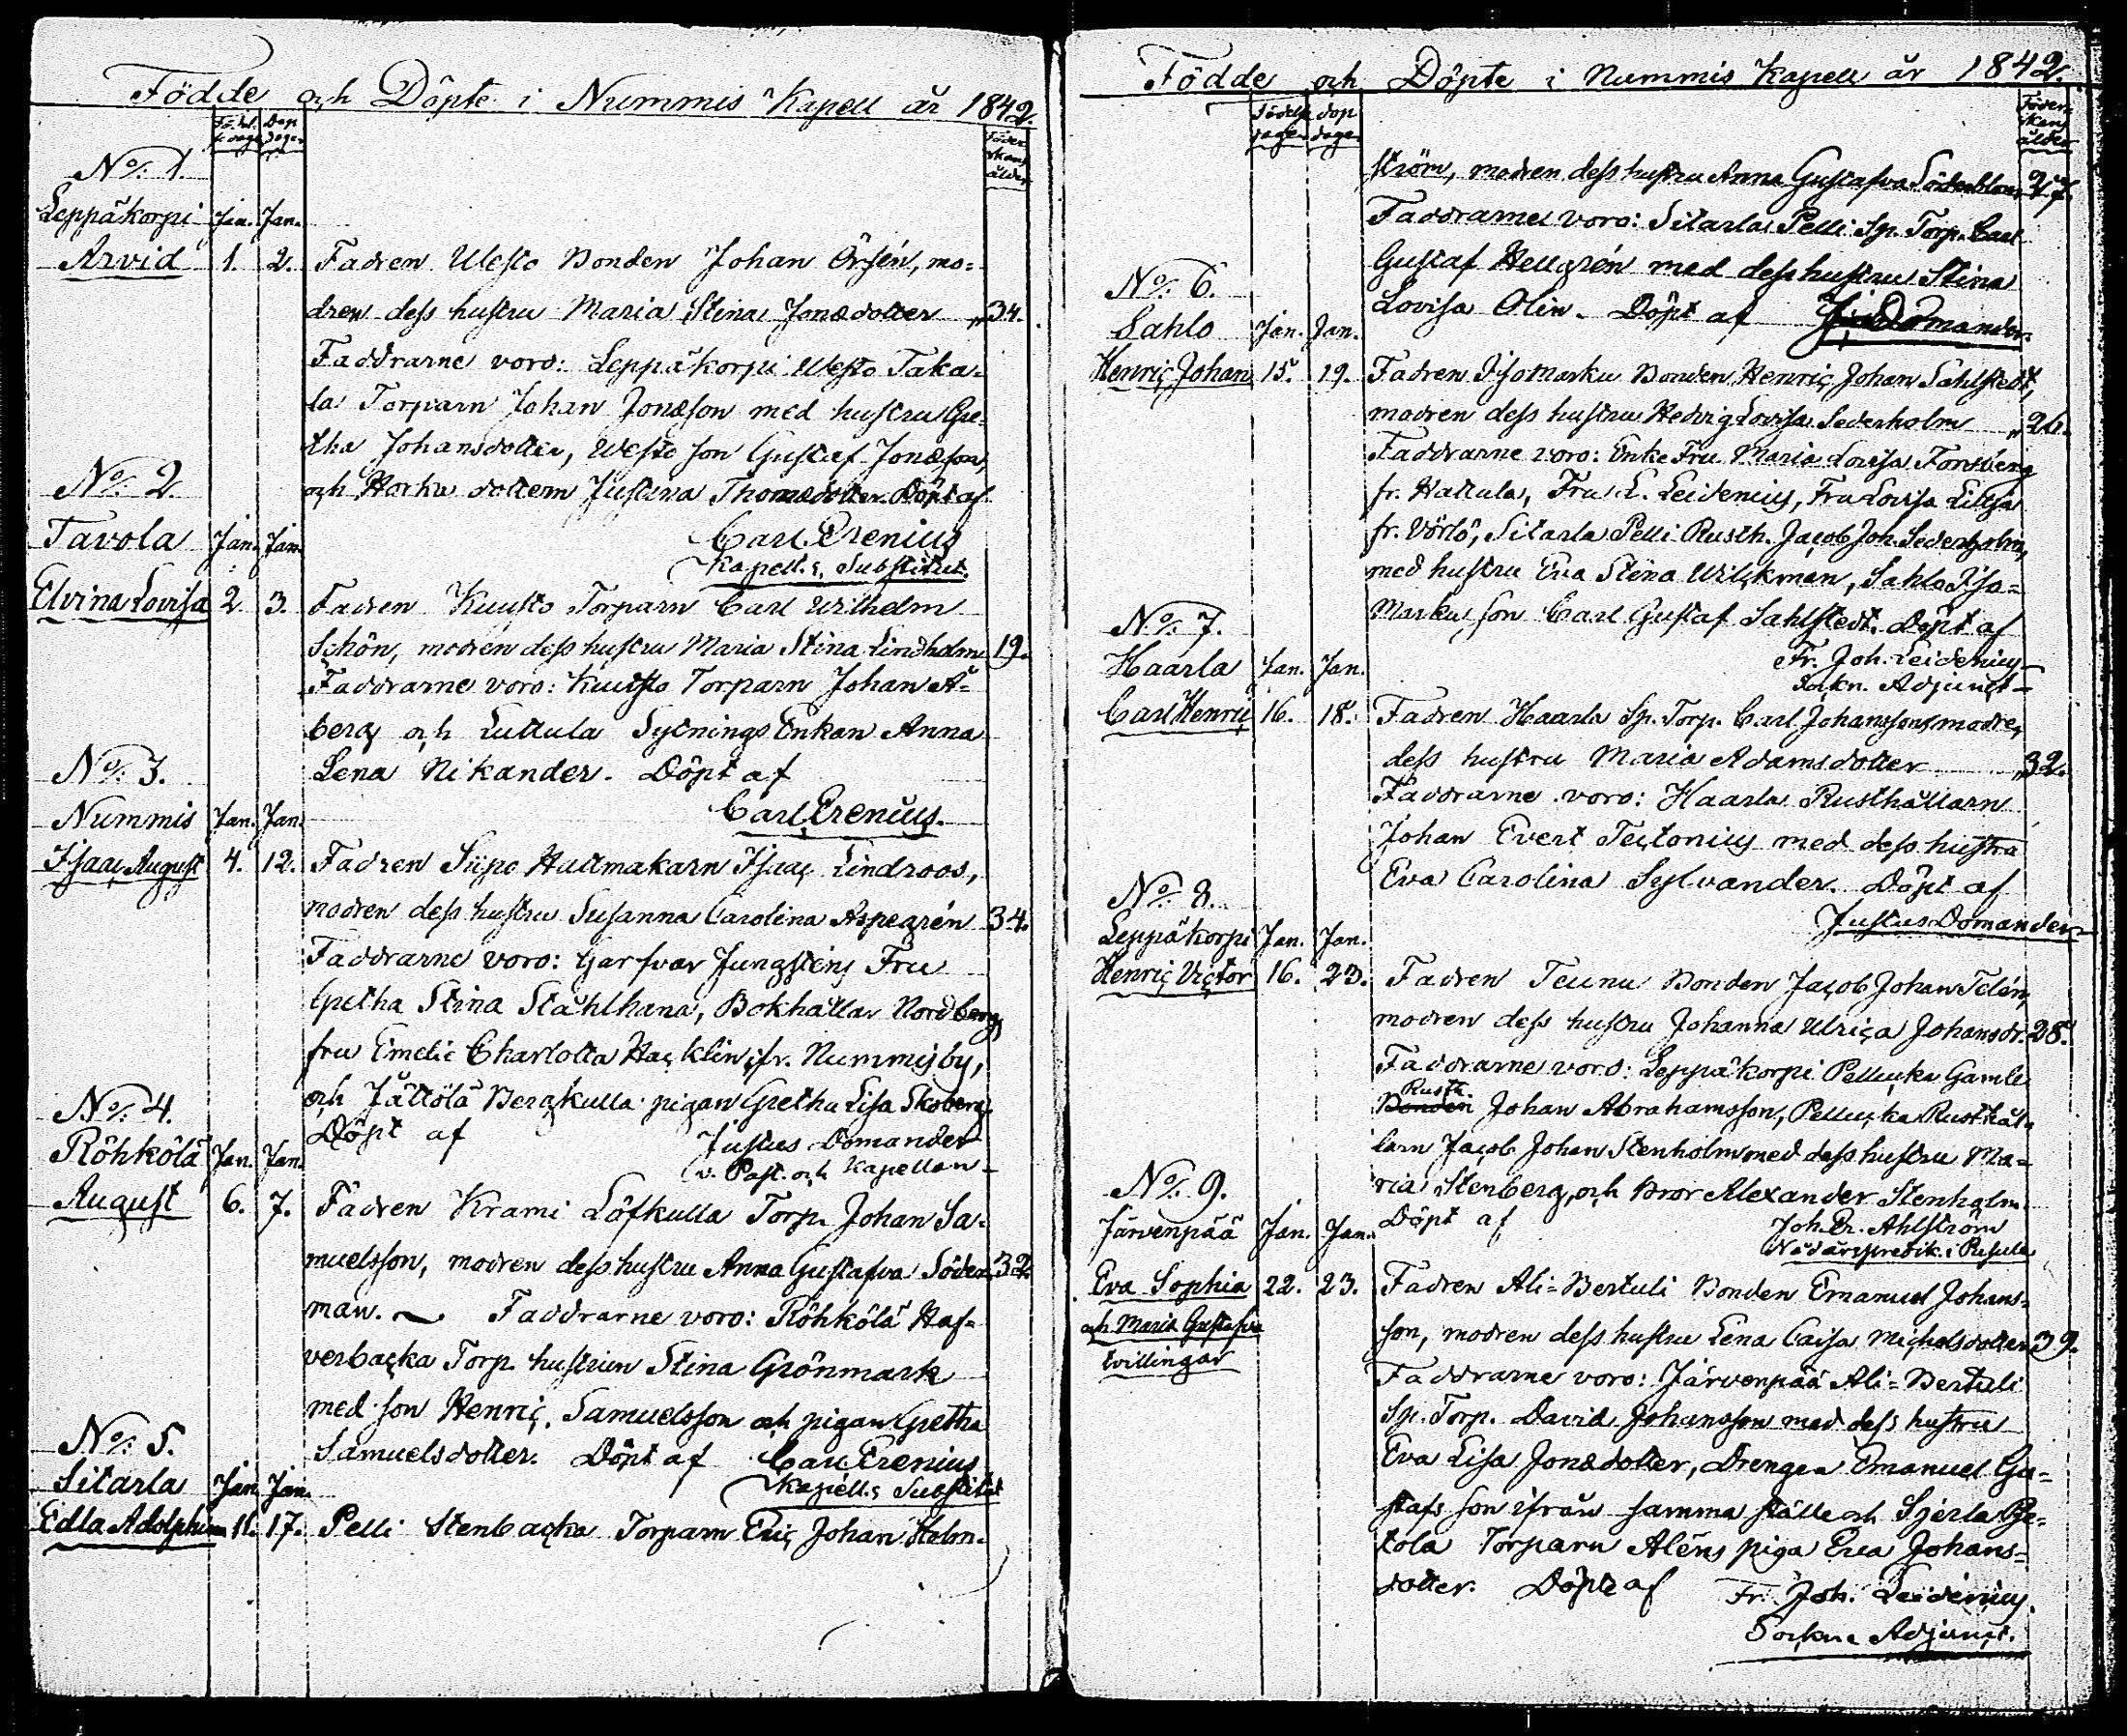 Födde och Döpte i Nummis Kapell år 1842.
Födel- Dop
sedagen dagen
Föder
skans
ålder
No. 1.
Leppäkorpi Jan. Jan.
Arvid 1. 2. Fadren Westo Bonden Johan Örsén, mo-
dren dess hustru Maria Stina Jonædotter „34.
Faddrarne voro: Leppäkorpi Westo Taka-
la Torparn Johan Jonæson med hustru Gre-
tha Johansdotter, Westo son Gustaf Jonæson,
och Horku dottern Justina Thomædotter. Döpt af
Carl Erenius
Kapell.s Substitut.
No. 2.
Tavola Jan. Jan.
Elvina Lovisa 2 3. Fadren Kuusto Torparn Carl Wilhelm
Schön, modren dess hustru Maria Stina Lindholm 19.
Faddrarne voro: Kuusto Torparn Johan Å-
berg och Luttula Sytnings Enkan Anna
Lena Nikander. Döpt af
Carl Erenius.
No. 3.
Nummis Jan. Jan.
Isaac August 4. 12. Fadren Siipo Hattmakarn Isaac Lindroos,
modren dess hustru Susanna Carolina Aspegrén 34.
Faddrarne voro: Garfvar Jungsténs Fru
Gretha Stina Ståhlhana, Bokhållar Nordbergs
fru Emelie Charlotta Hacklin, fr. Nummisby,
och Jättölä Bergkulla pigan Gretha Lisa Skoberg.
Döpt af Justus Domander
v. Past. och Kapellan
No. 4.
Röhkölä Jan. Jan.
August 6. 7. Fadren Krami Löfkulla Torp. Johan Sa-
muelsson, modren dess hustru Anna Gustafva Söder- 32.
man. Faddrarne voro: Röhkölä Haf-
verbacka Torp. hustrun Stina Grönmark
med son Henric Samuelsson och pigan Gretha
Samuelsdotter. Döpt af Carl Erenius
Kapell.s Substitut
No. 5.
Sitarla Jan. Jan.
Edla Adolphina 11. 17. Pelli Stenbacka Torparn Eric Johan Holm-
Födde och Döpte i Nummis Kapell år 1842.
Födelse dop
dagen dagen
Föder
skans
ålder
ström, modren dess hustru Anna Gustafva Söderblom 27.
Faddrarne voro: Sitarla Pelli Sp. Torp. Carl
Gustaf Hellgrén med dess hustru Stina
Lovisa Olin. Döpt af J: Domander.
No. 6.
Sahlo Jan. Jan.
Henric Johan 15. 19. Fadren Isomarku Bonden Henric Johan Sahlstedt,
modren dess hustru Hedvig Lovisa Sederholm „26.
Faddrarne voro: Enke Fru Maria Lovisa Forsberg
fr. Hattula, Fru L. Leidenius, Fru Lovisa Lilja
fr. Vörlö, Sitarla Pelli Rusth. Jacob Joh. Sederholm,
med hustru Eva Stina Wilckman, Sahlo Iso-
Marku son Carl Gustaf Sahlstedt. Döpt af
Fr. Joh. Leidenius
Sokn. Adjunct
No. 7.
Haarla Jan. Jan.
Carl Henric 16. 18. Fadren Haarla Sp. Torp. Carl Johansson, modren
dess hustru Maria Adamsdotter „32.
Faddrarne voro: Haarla Rusthållarn
Johan Evert Tectonius med dess hustru
Eva Carolina Sylvander. Döpt af
Justus Domander
No. 8.
Leppäkorpi Jan. Jan.
Henric Victor 16. 23. Fadren Teunu Bonden Jacob Johan Telén,
modren dess hustru Johanna Ulrica Johansdr. 28.
Faddrarne voro: Leppäkorpi Pellucka Gamle
Rusth.
Bonden Johan Abrahamsson, Pellucka Rusthål-
larn Jacob Johan Stenholm med dess hustru Ma-
ria Stenberg, och Bror Alexander Stenholm.
Döpt af Joh. Er. Ahlström
Nådårspredik. i Pusula
No. 9.
Järvenpää Jan. Jan.
Eva Sophia 22. 23. Fadren Ali-Bertuli Bonden Emanuel Johans-
och Maria Gustafva
tvillingar
son, modren dess hustru Lena Caisa Michelsdotter 39.
Faddrarne voro: Järvenpää Ali-Bertuli
Sp. Torp. David Johansson med dess hustru
Eva Lisa Jonædotter, Drengen Emanuel Gu-
stafs son ifrån samma ställe och Sjerla Pje-
tola Torparn Aléns piga Eva Johans-
dotter. Döpte af Fr. Joh. Leidenius.
Sockne Adjunct.